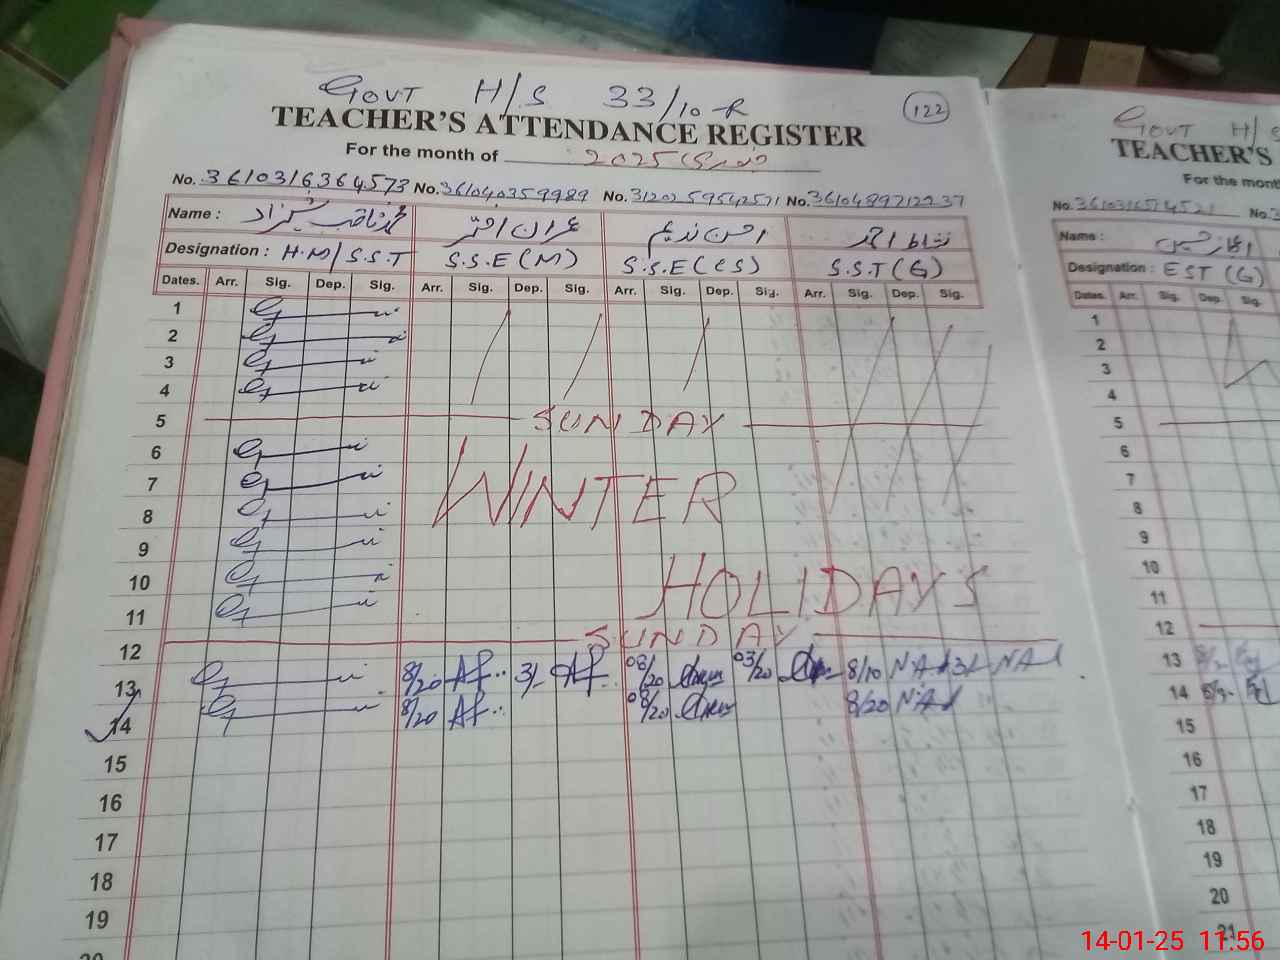 Govt H/S 33/10-R
122
TEACHER'S ATTENDANCE REGISTER
For the month of جنوری 2025
No. 3610316364573 No. 361040359989 No. 3120259542571 No.
Name : عمران اختر احسن ندیم نشاط احمد
Designation : H.M/S.S.T S.S.E(M) S.S.E(CS) S.S.T(G)
Dates. Arr. Sig. Dep. Sig. Arr. Sig. Dep. Sig. Arr. Sig. Dep. Sig. Arr. Sig. Dep. Sig.
1
2
3
4
5 SUNDAY
6
7 WINTER
8
9
10 HOLIDAYS
11
12 SUNDAY
13 8/20 3/- 08/20 03/20 8/10
14 8/20 08/20 8/20
15
16
17
18
19
20
Govt H/S
TEACHER'S
For the month
No. No.
Name :
Designation : EST (G)
Dates. Arr. Sig. Dep. Sig.
1
2
3
4
5
6
7
8
9
10
11
12
13
14
15
16
17
18
19
20
21
14-01-25 11:56